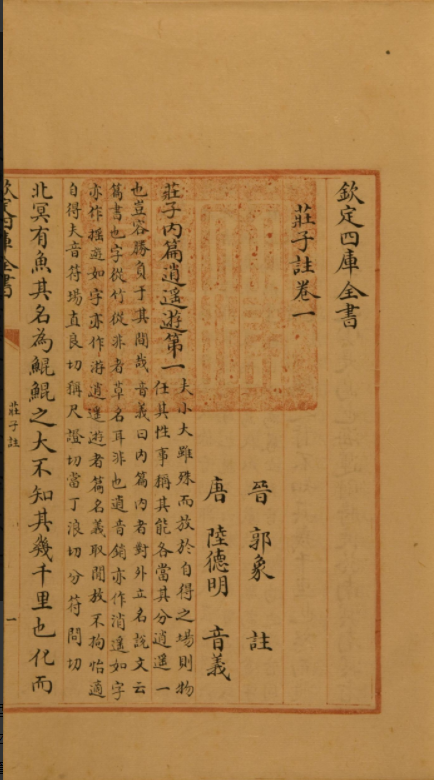 欽定四庫全書
莊子註卷一
晉 郭象 註
唐 陸德明 音義
莊子内篇逍遥遊第一
夫小大雖殊而放於自得之場則物
任其性事稱其能各當其分逍遥一
也豈容勝負于其間哉音義曰内篇内者對外立名說文云
篇書也字從竹從非者草名耳非也逍音銷亦作消遥如字
亦作摇遊如字亦作游逍遥遊者篇名義取閒放不拘怡適
自得夫音符場直良切稱尺證切當丁浪切分符問切
北冥有魚其名為鯤鯤之大不知其幾千里也化而
欽定四庫全書
莊子註
一